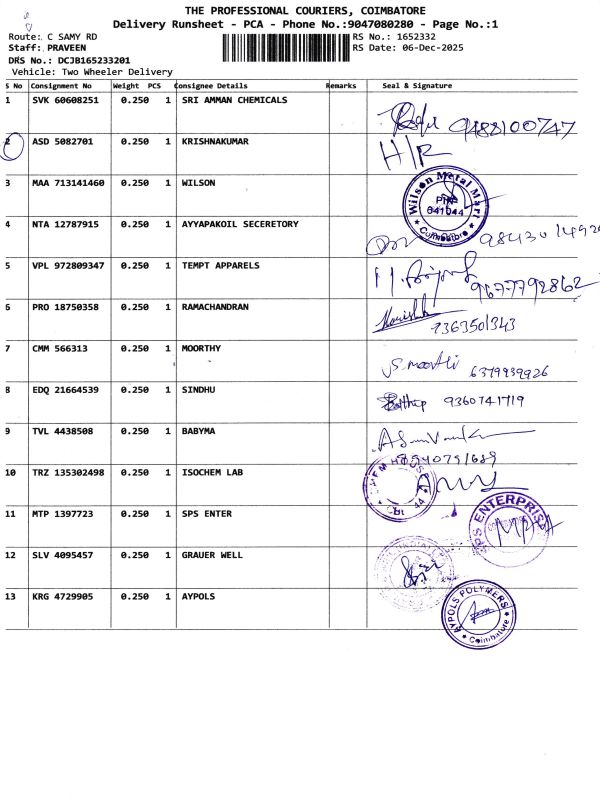 THE PROFESSIONAL COURIERS, COIMBATORE
Delivery Runsheet - PCA - Phone No.:9047080280 - Page No.:1
Route: C SAMY RD
RS No.: 1652332
Staff: PRAVEEN
RS Date: 06-Dec-2025
DRS No.: DCJB165233201
Vehicle: Two Wheeler Delivery
S No Consignment No Weight PCS Consignee Details Remarks Seal & Signature
1 SVK 60608251 0.250 1 SRI AMMAN CHEMICALS
9488100747
2 ASD 5082701 0.250 1 KRISHNAKUMAR H/R
3 MAA 713141460 0.250 1 WILSON
Wilson Metal Mart
641044
Coimbatore
4 NTA 12787915 0.250 1 AYYAPAKOIL SECERETORY
5 VPL 972809347 0.250 1 TEMPT APPARELS
9677792862
6 PRO 18750358 0.250 1 RAMACHANDRAN
Harish
7363501343
7 CMM 566313 0.250 1 MOORTHY
S. moorthi 6379939926
8 EDQ 21664539 0.250 1 SINDHU
9360741719
9 TVL 4438508 0.250 1 BABYMA
10 TRZ 135302498 0.250 1 ISOCHEM LAB
11 MTP 1397723 0.250 1 SPS ENTER
SPS ENTERPRISE
12 SLV 4095457 0.250 1 GRAUER WELL
13 KRG 4729905 0.250 1 AYPOLS
AYPOLS POLYMERS
Coimbatore